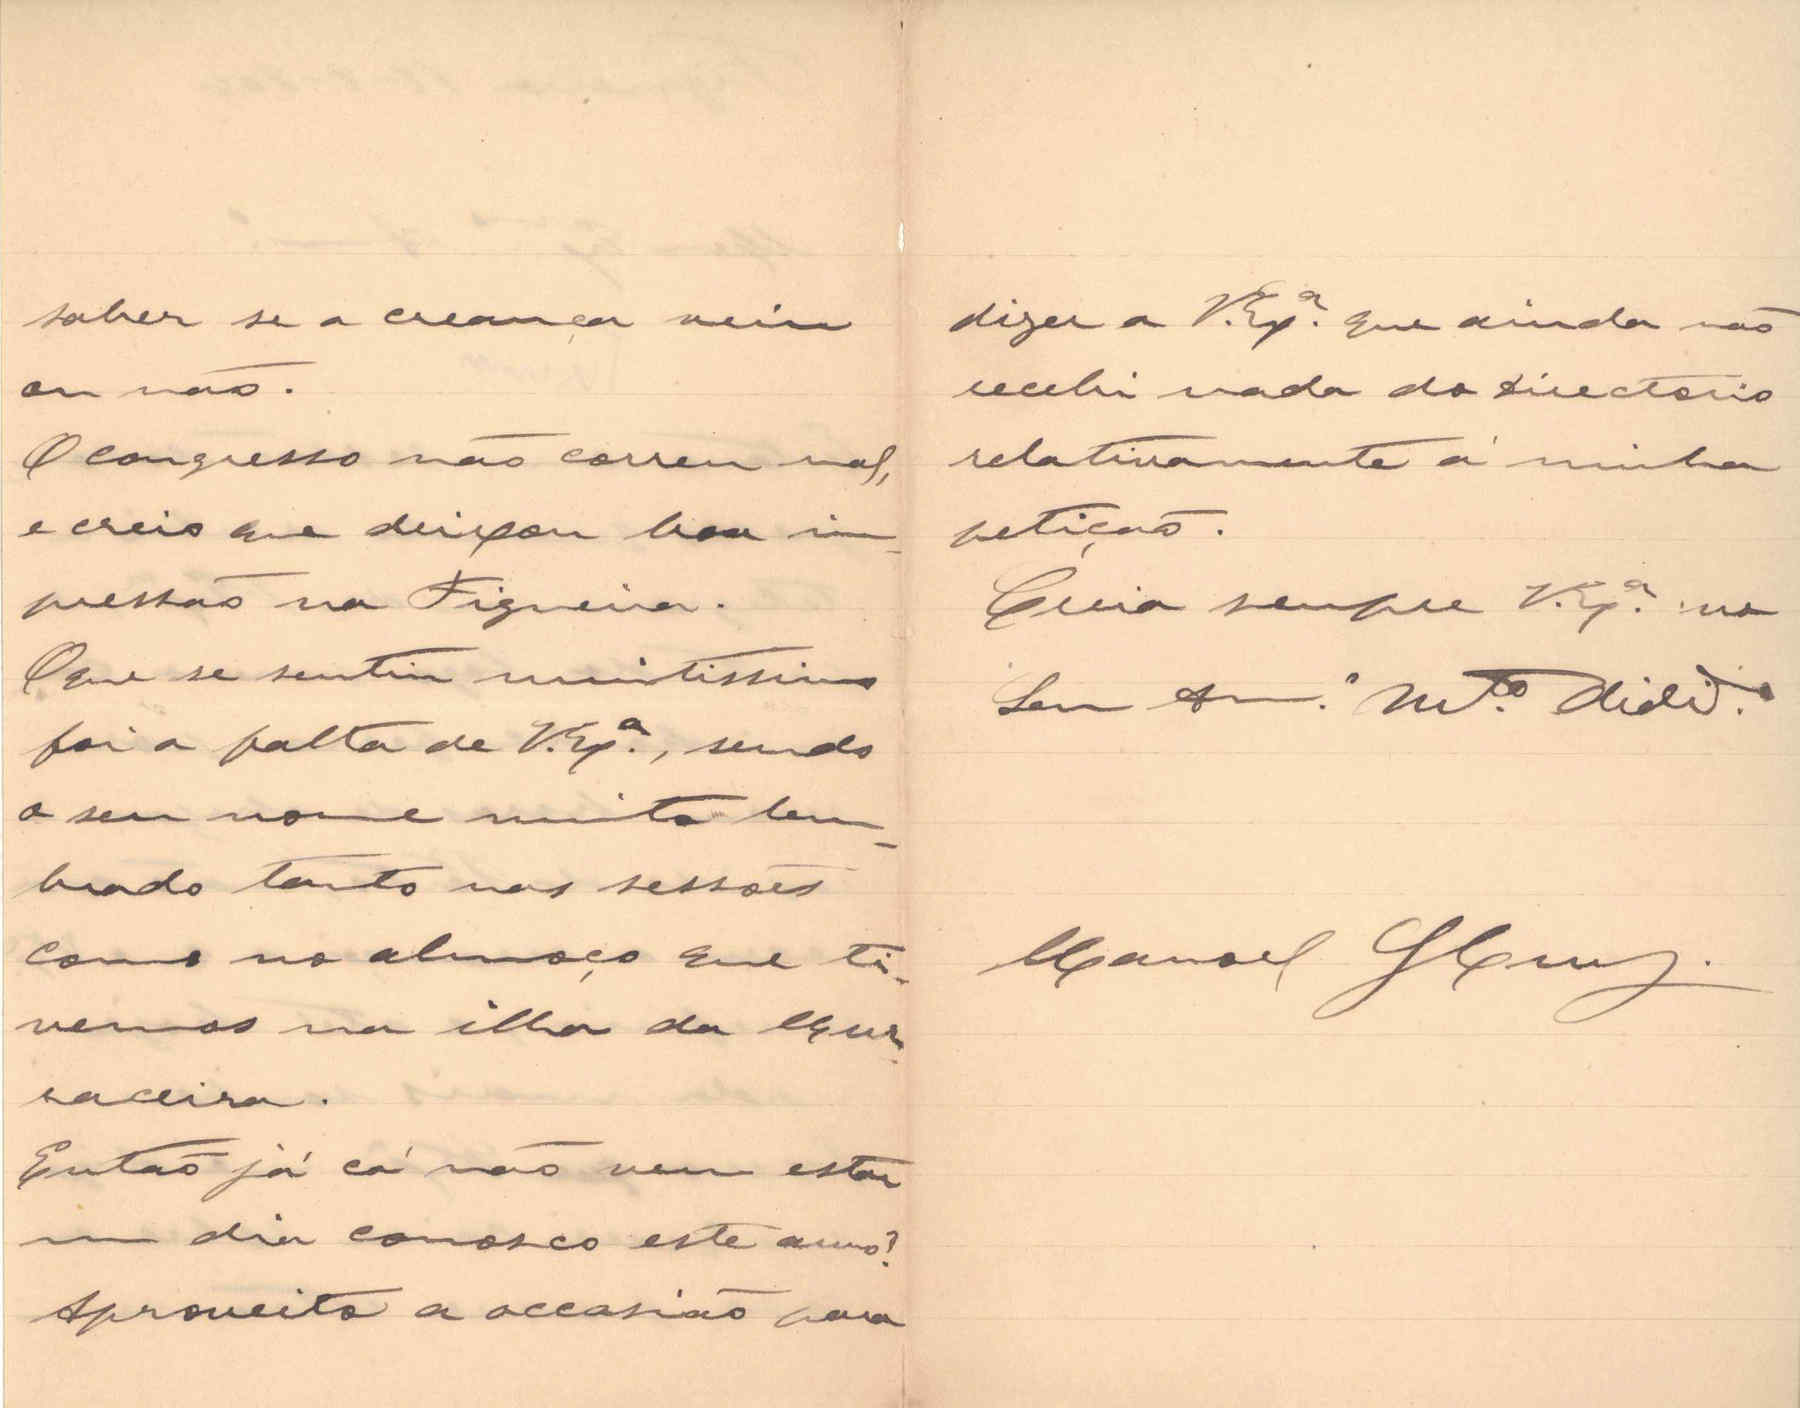 saber se a creança veiu
ou não.
O congresso não correu mal,
e creio que deixou boa im-
pressão na Figueira.
O que se sentiu muitissimo
foi a falta de V. Exª., sendo
o seu nome muito lem-
brado tanto nas sessões
como no almoço que ti-
vemos na ilha da Mur-
raceira.
Então já cá não vem estar
um dia conosco este anno?
Aproveito a occasião para
dizer a V. Exª. que ainda não
recebi nada do Directorio
relativamente á minha
petição.
Creia sempre V. Exª. no
Seu Am.º Mtº. Dedid.º
Manoel Cruz.